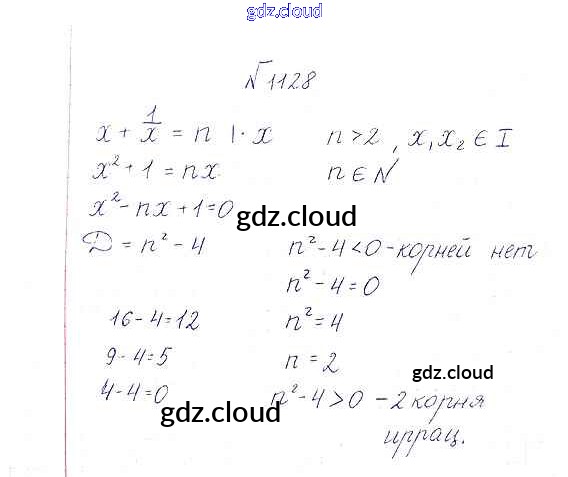 gdz.cloud
№1128
x + 1/x = n |· x n > 2, x₁ x₂ ∈ I
x² + 1 = nx n ∈ N
x² - nx + 1 = 0
gdz.cloud
D = n² - 4 n² - 4 < 0 - корней нет
n² - 4 = 0
16 - 4 = 12 n² = 4
9 - 4 = 5 n = 2
gdz.cloud
4 - 4 = 0 n² - 4 > 0 - 2 корня
gdz.cloud
иррац.